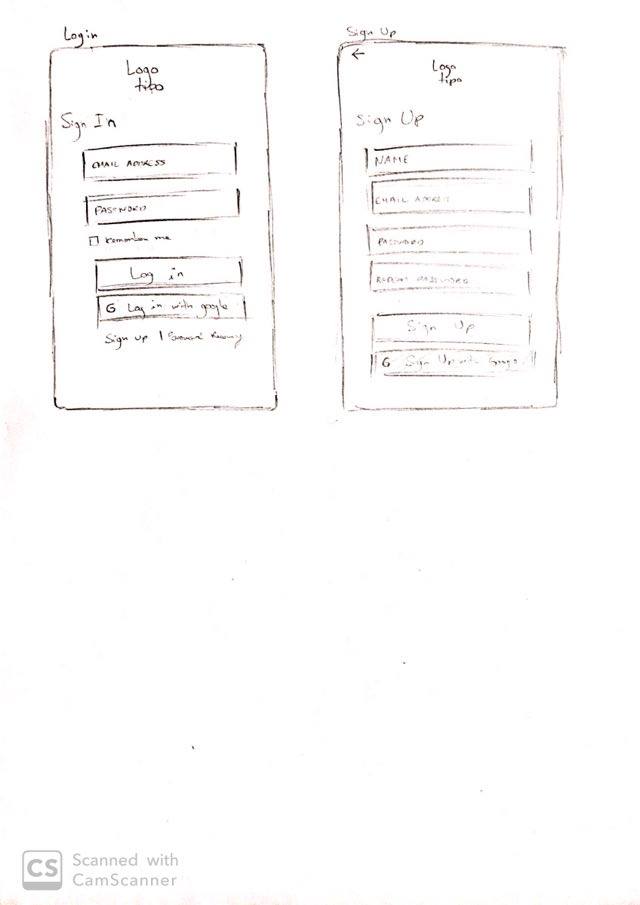 Login
Logo
tipo
Sign In
EMAIL ADDRESS
PASSWORD
Remember me
Log in
G Log in with google
Sign up |
Sign Up
←
Logo
tipo
Sign Up
NAME
EMAIL ADDRESS
PASSWORD
REPEAT PASSWORD
Sign Up
G Sign Up with Google
CS Scanned with
CamScanner